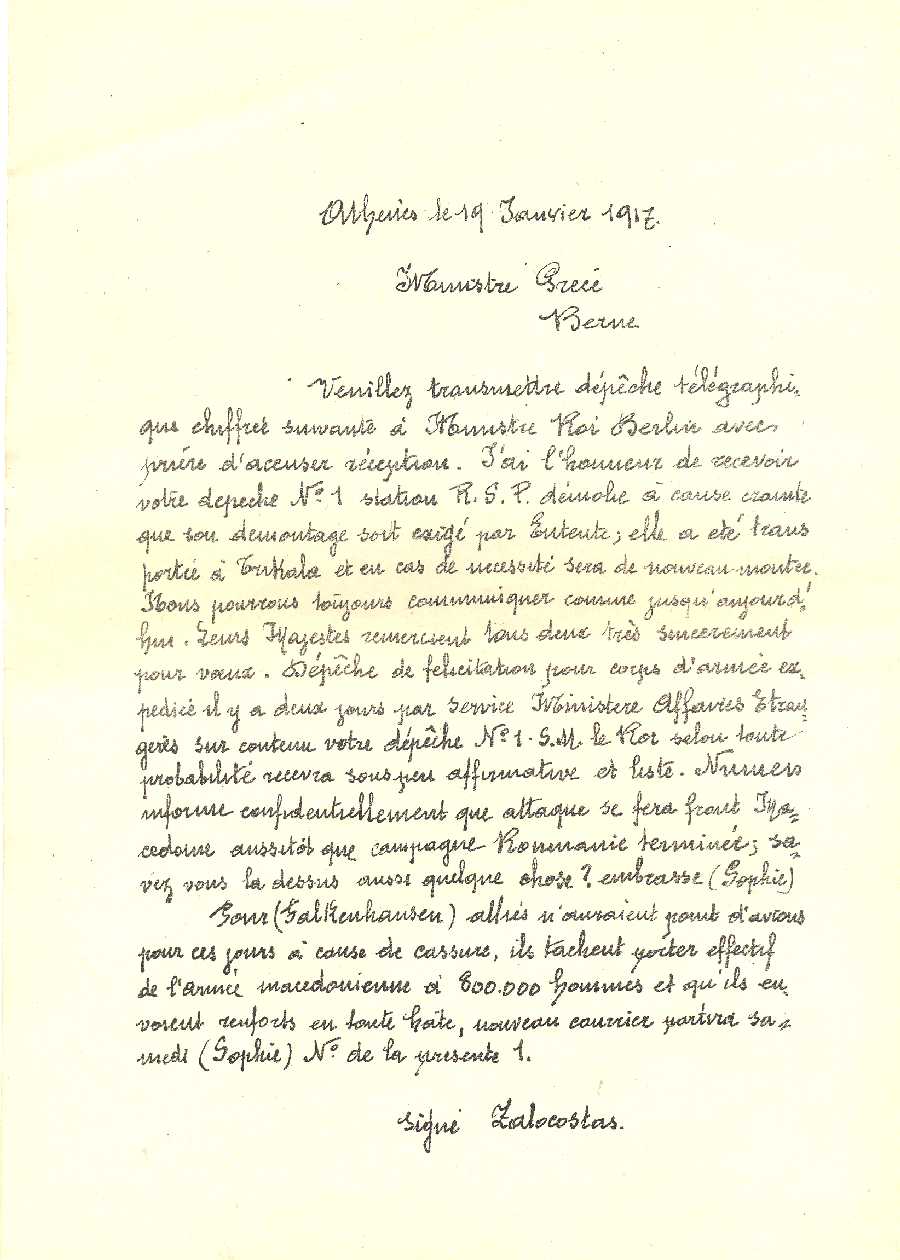 Athenes le 19 Janvier 1917.
Ministre Grece
Berne
Veuillez transmettre dépêche télégraphi-
que chiffreé suivante à Ministre Roi Berlin avec
priére d'acenser réception. J'ai l'honneur de recevoir
votre depeche Nº 1 station R. S. P. démolie à cause crainte
que son demontage soit exigé par Entente; elle a eté trans
portée à Trikala et en cas de necessité sera de nouveau montée.
Nous pourrons toujours communiquer comme jusqu'aujourd'
hui. Leurs Majestes remercient tous deux très sincerement
pour vœux. Dépêche de felicitation pour corps d'armée ex-
pedieé il y a deux jours par service Ministere Affaires Etran-
gerès sur contenu votre dépêche Nº 1. S.M. le Roi selon toute
probabilité recevra sous peu affirmative et liste.
informe confidentiellement que attaque se fera front Ma-
cedoine aussitôt que campagne Roumanie terminée; sa-
vez vous la dessus aussi quelque chose? embrasse (Sophie)
Pour (Falkenhausen) alliés n'auraient point d'avions
pour ces jours à cause de cassure, ils tachent porter effectif
de l'armée macedonienne à 800.000 hommes et qu'ils en-
voient renforts en toute hâte, nouveau courrier partira sa-
medi (Sophie) Nº de la presente 1.
Signé Zalocostas.